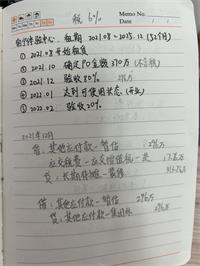 Memo No.
税 6%
Date / /
自行体验中心. 租期 2021.08 ~ 2025.12 (52个月)
① 2021.08 开始租赁
② 2021.10 确定PO金额 370万 (不含税)
③ 2021.12 验收80% 296万
④ 2022.01 达到可使用状态 (开业)
⑤ 2022.02 验收20%
2021年12月
借: 其他应付款-暂估 296万
应交税费-应交增值税-进 17.76万
贷: 长期待摊-装修
借: 其他应付款-暂估 296万
贷: 其他应付款-集团 296万